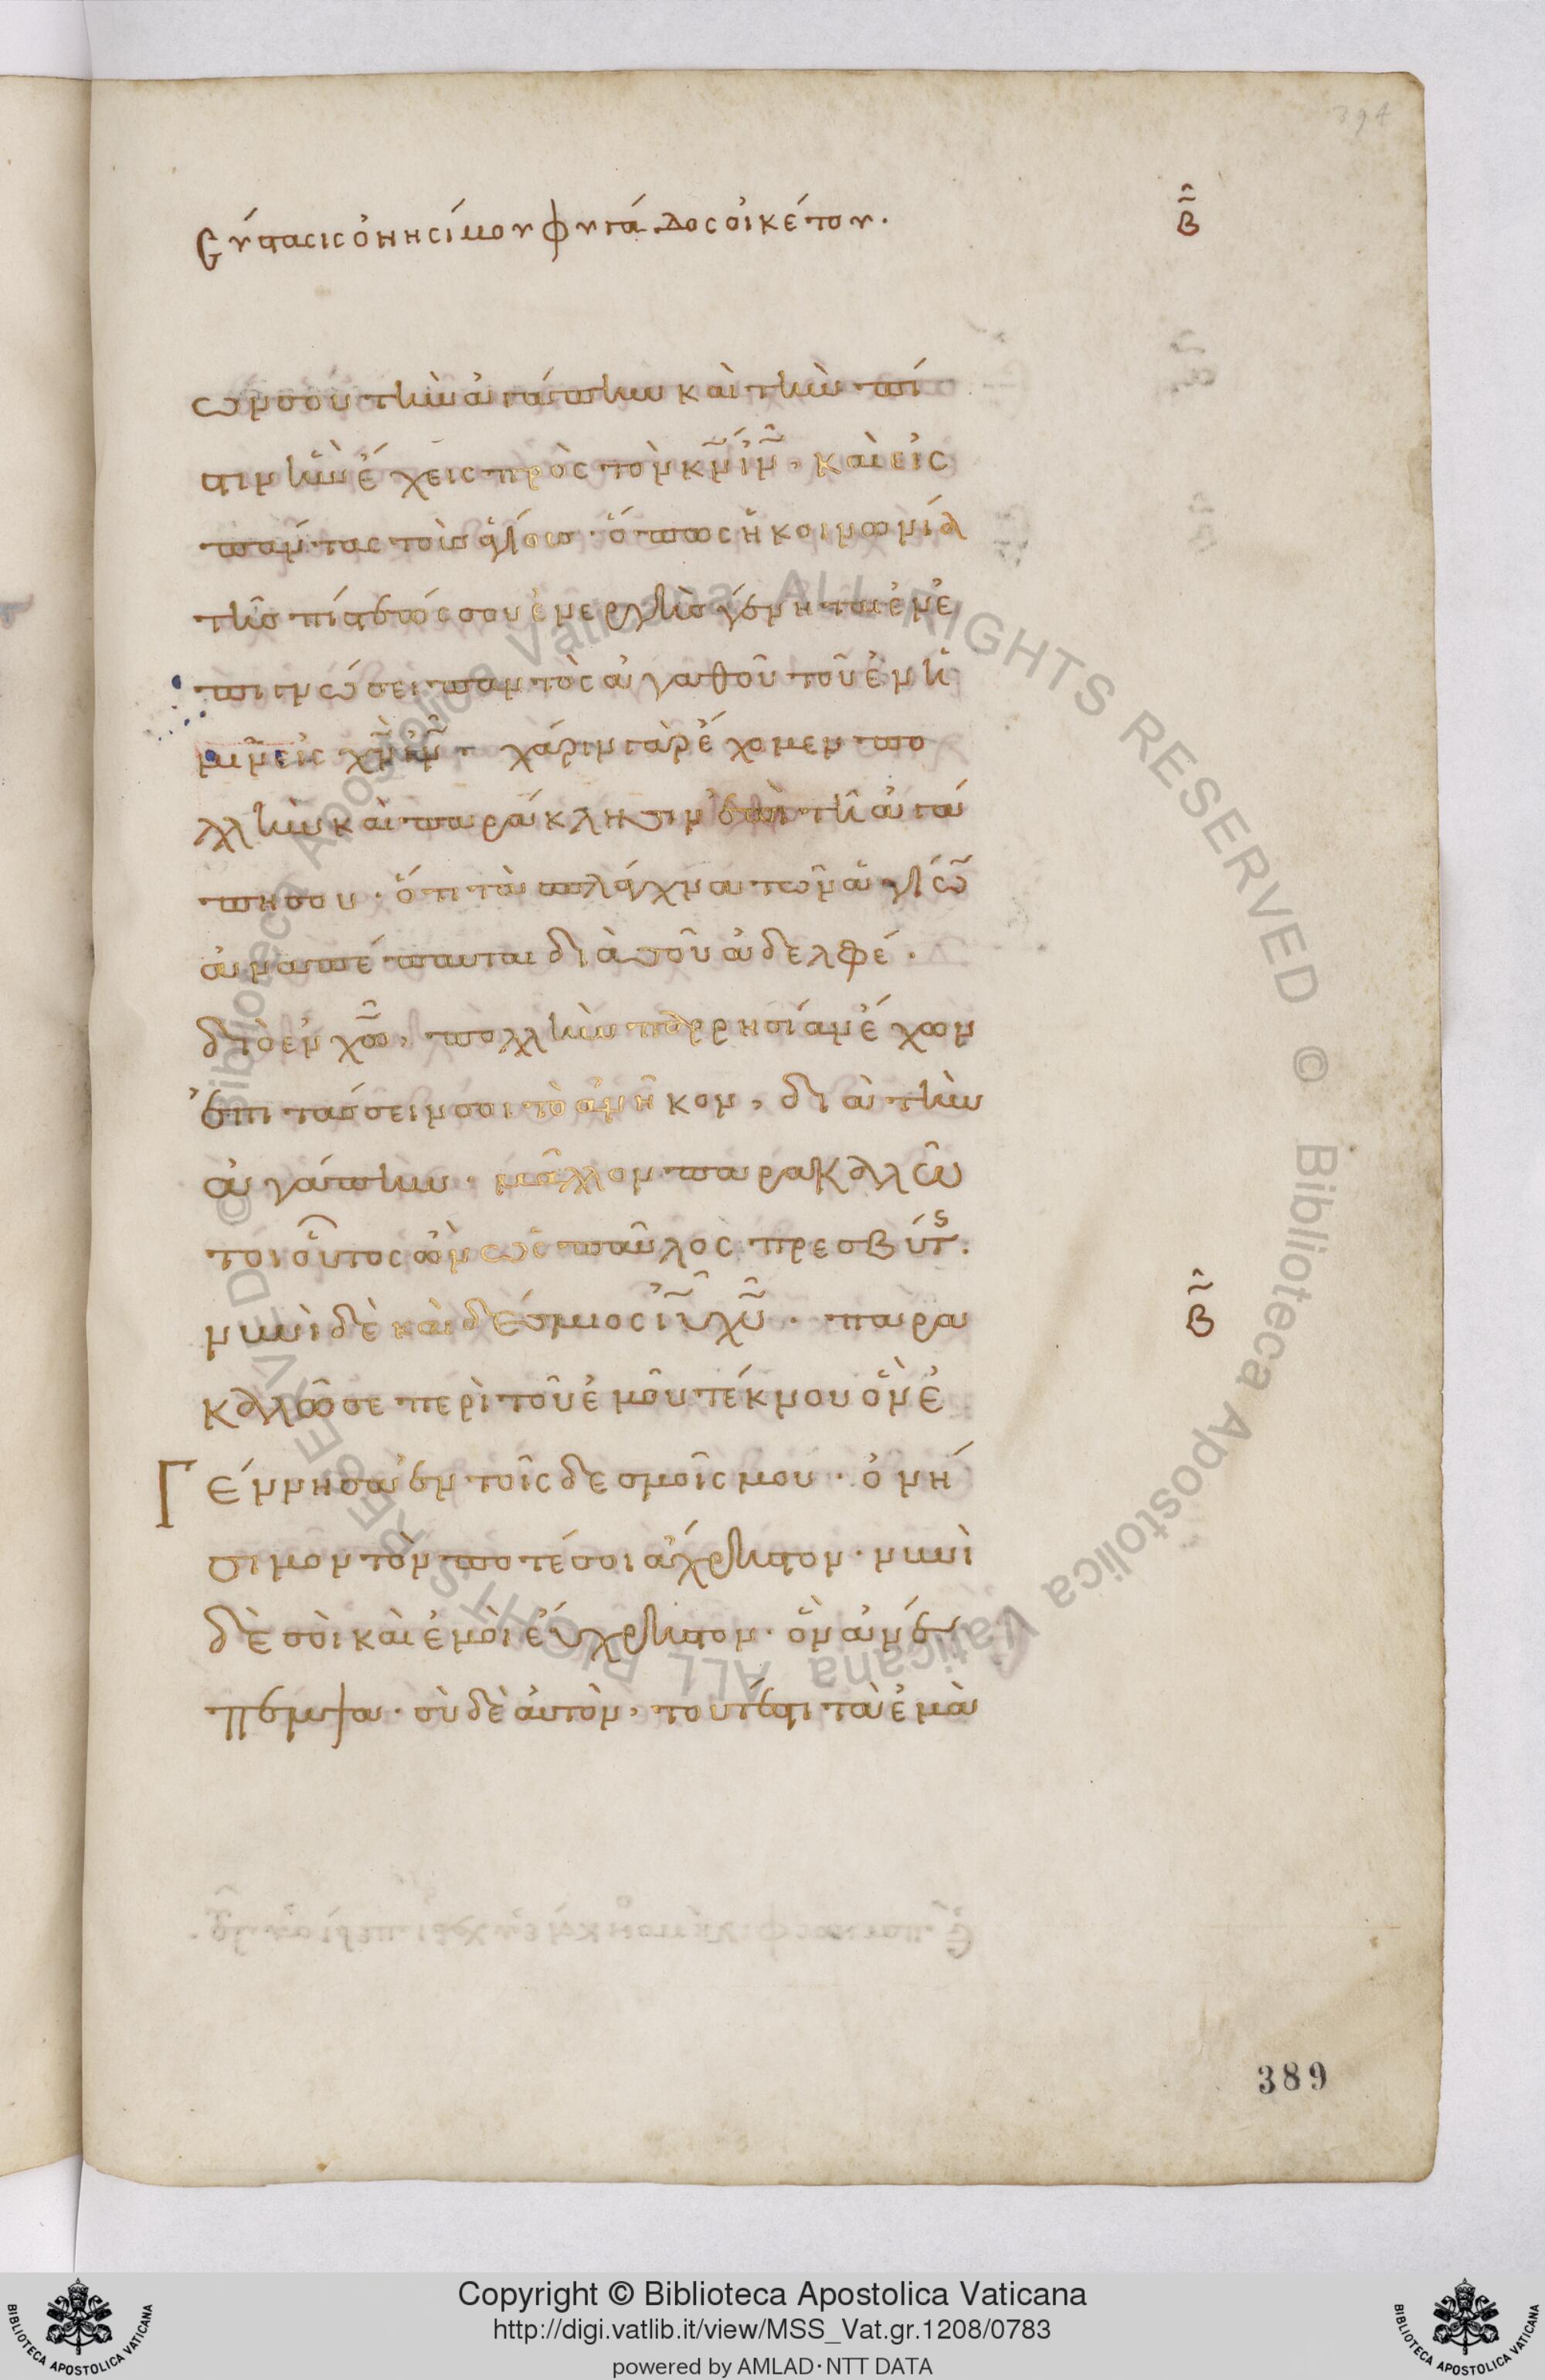 394
Σύστασις ὀνησίμου φυγάδος οἰκέτου.
β
ων σου τὴν ἀγάπην καὶ τὴν πί
στιν ἣν ἔχεις πρὸς τὸν κν ιν, καὶ εἰς
πάντας τοὺς ἁγίους. ὅπως ἡ κοινωνία
τῆς πίστεώς σου ἐνεργὴς γένηται ἐν ἐ
πιγνώσει παντὸς ἀγαθοῦ τοῦ ἐν ἡ
μῖν εἰς χν ιν. χάριν γὰρ ἔχομεν πο
λλὴν καὶ παράκλησιν ἐπὶ τῇ ἀγά
πη σου. ὅτι τὰ σπλάγχνα τῶν ἁγίων
ἀναπέπαυται διὰ σοῦ ἀδελφέ.
διὸ ἐν χω, πολλὴν παρρησίαν ἔχων
ἐπιτάσσειν σοι τὸ ἀνῆκον, διὰ τὴν
ἀγάπην. μᾶλλον παρακαλῶ
τοιοῦτος ὢν ὡς παῦλος πρεσβύτς.
νυνὶ δὲ καὶ δέσμιος ιυ χυ. παρα
β
καλῶ σε περὶ τοῦ ἐμοῦ τέκνου ὃν ἐ
Γέννησα ἐν τοῖς δεσμοῖς μου. ὀνή
σιμον τόν ποτέ σοι ἄχρηστον. νυνὶ
δὲ σοὶ καὶ ἐμοὶ εὔχρηστον. ὃν ἀνέ
πεμψα. σὺ δὲ αὐτὸν, τουτέστι τὰ ἐμὰ
389
© Biblioteca Apostolica Vaticana ALL RIGHTS RESERVED © Biblioteca Apostolica Vaticana ALL RIGHTS RESERVED
Copyright © Biblioteca Apostolica Vaticana
http://digi.vatlib.it/view/MSS_Vat.gr.1208/0783
powered by AMLAD·NTT DATA
BIBLIOTECA APOSTOLICA VATICANA
BIBLIOTECA APOSTOLICA VATICANA